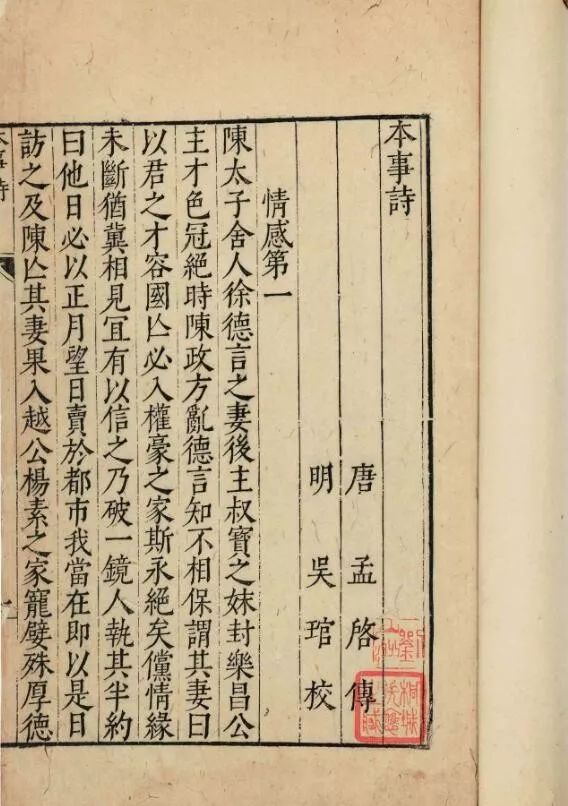 本事詩
唐孟啓傳
明吳琯校
情感第一
陳太子舍人徐德言之妻後主叔寶之妹封樂昌公
主才色冠絕時陳政方亂德言知不相保謂其妻曰
以君之才容國亾必入權豪之家斯永絕矣儻情緣
未斷猶冀相見冝有以信之乃破一鏡人執其半約
曰他日必以正月望日賣於都市我當在即以是日
訪之及陳亾其妻果入越公楊素之家寵嬖殊厚德
本事詩